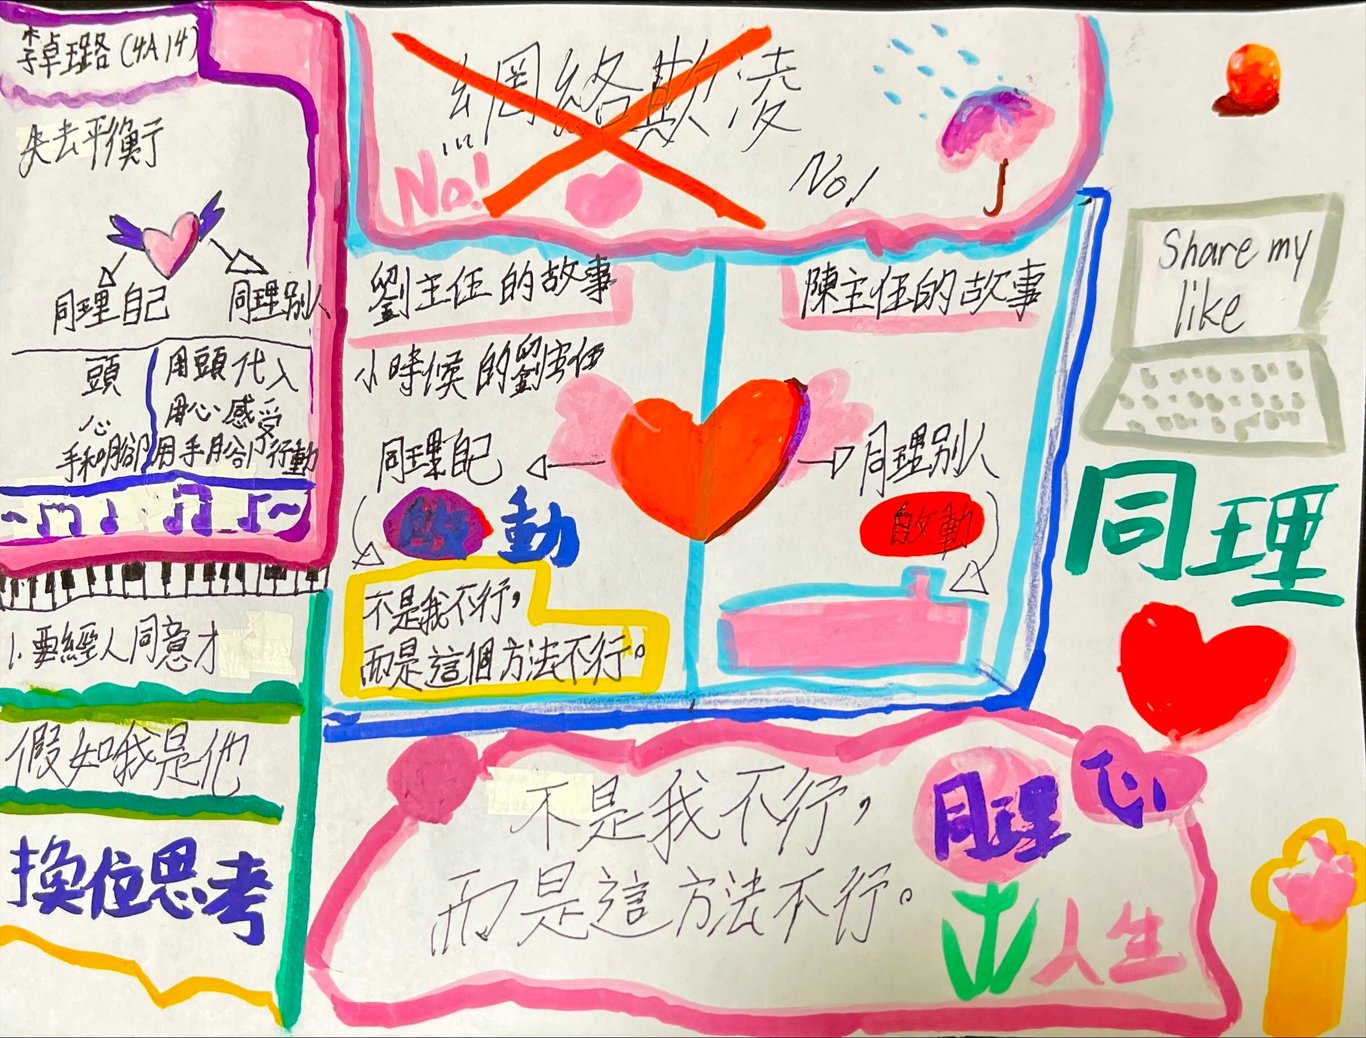 李卓璐(4A14)
失去平衡
同理自己
同理別人
頭
心
手和腳
用頭代入
用心感受
用手腳行動
1.要經人同意才
假如我是他
換位思考
網絡欺凌
No!
No!
劉主任的故事
小時候的劉主任
同理自己
啟動
不是我不行，
而是這個方法不行。
陳主任的故事
同理別人
啟動
Share my
like
同理
不是我不行，
而是這方法不行。
同理心
人生